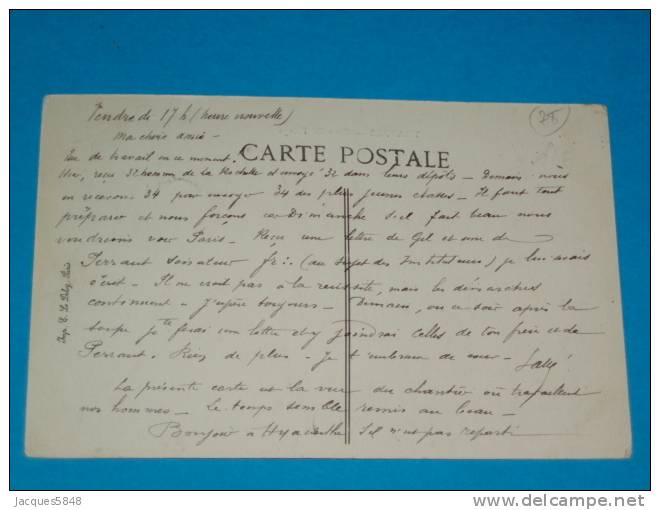 Vendredi 17 h (heure nouvelle)
Ma chère amie -
CARTE POSTALE
Peu de travail en ce moment.
Hier, reçu 32 hommes de La Rochelle et envoyé 32 dans leurs dépôts - Demain nous
en recevons 34 pour envoyer 34 des plus jeunes classes - Il faut tout
préparer et nous forçons car Dimanche s'il fait beau nous
voudrions voir Paris - Reçu une lettre de Gel et une de
Perraut Sénateur (au sujet des Instituteurs) je lui avais
écrit - Il ne croit pas à la réussite, mais les démarches
continuent - J'espère toujours - Demain, ou ce soir après la
soupe je te ferai une lettre et y joindrai celles de ton frère et de
Perraut. Rien de plus - Je t'embrasse de cœur -
La présente carte est la vue du chantier où travaillent
nos hommes - Le temps semble remis au beau -
Bonjour à Hyacinthe s'il n'est pas reparti
Imp. E. Le Deley, Paris
Jacques5848
delcampe.net